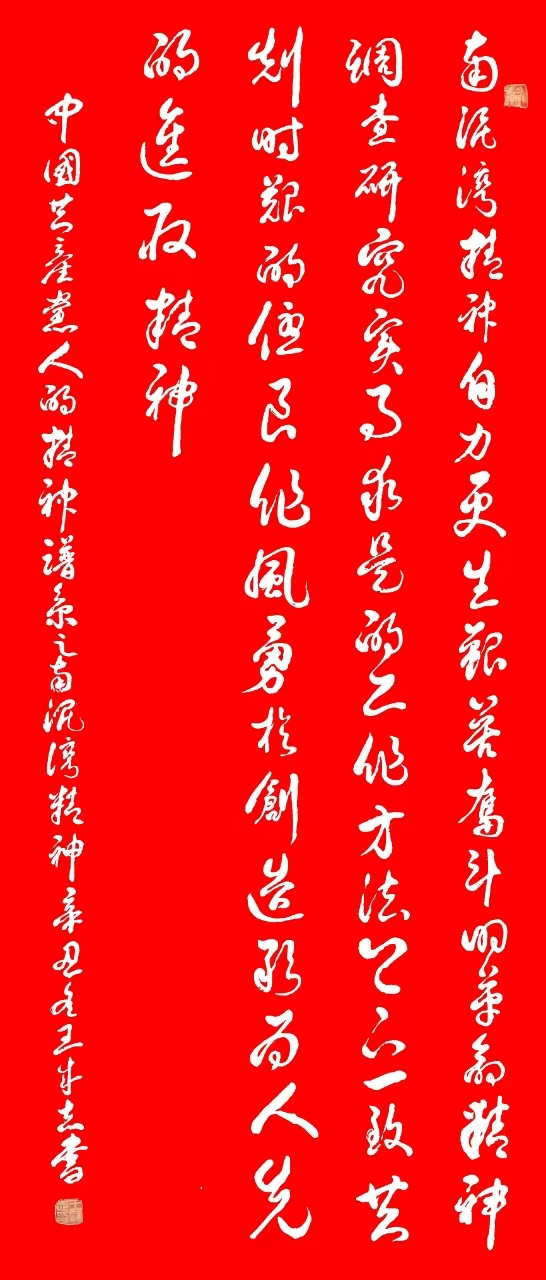 南泥湾精神自力更生艱苦奮斗的革命精神
调查研究实事求是的工作方法上下一致共
剋时艱的优良作風勇於創造敢为人先
的進取精神
中國共產黨人的精神譜系之南泥湾精神辛丑冬王成志書